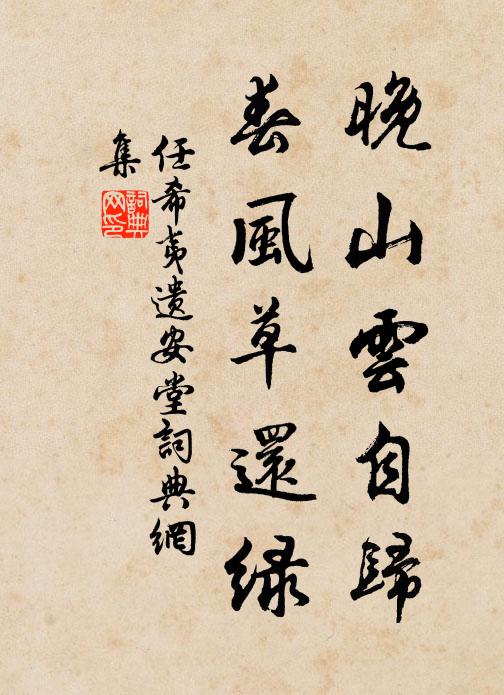 晚山雲自歸
春風草還緑
任希夷遺安堂詞典網
集
詞典
网印